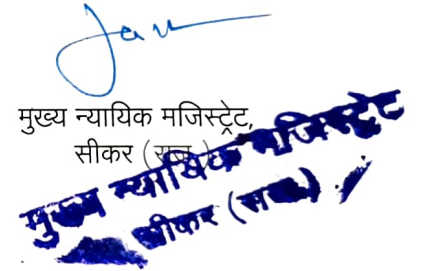 मुख्य न्यायिक मजिस्ट्रेट,
सीकर (राज.)
मुख्य न्यायिक मजिस्ट्रेट
सीकर (राज.)